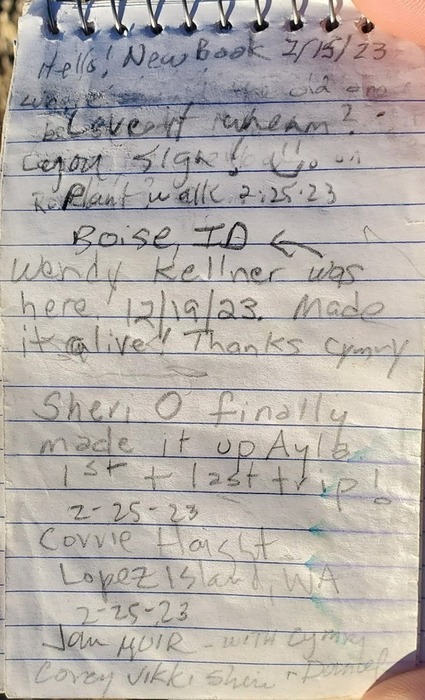 Hello! New Book 2/15/23
old
Love it when?
sign
Plant walk 2.25.23
Boise, ID ←
Wendy Kellner was
here! 12/19/23. Made
it alive! Thanks Cymry
Sheri O finally
made it up Ayla
1st + last trip!
2-25-23
Corrie Haight
Lopez Island, WA
2-25-23
Jan MUIR - with Cymry
Corey Vikki Sheri + Daniel